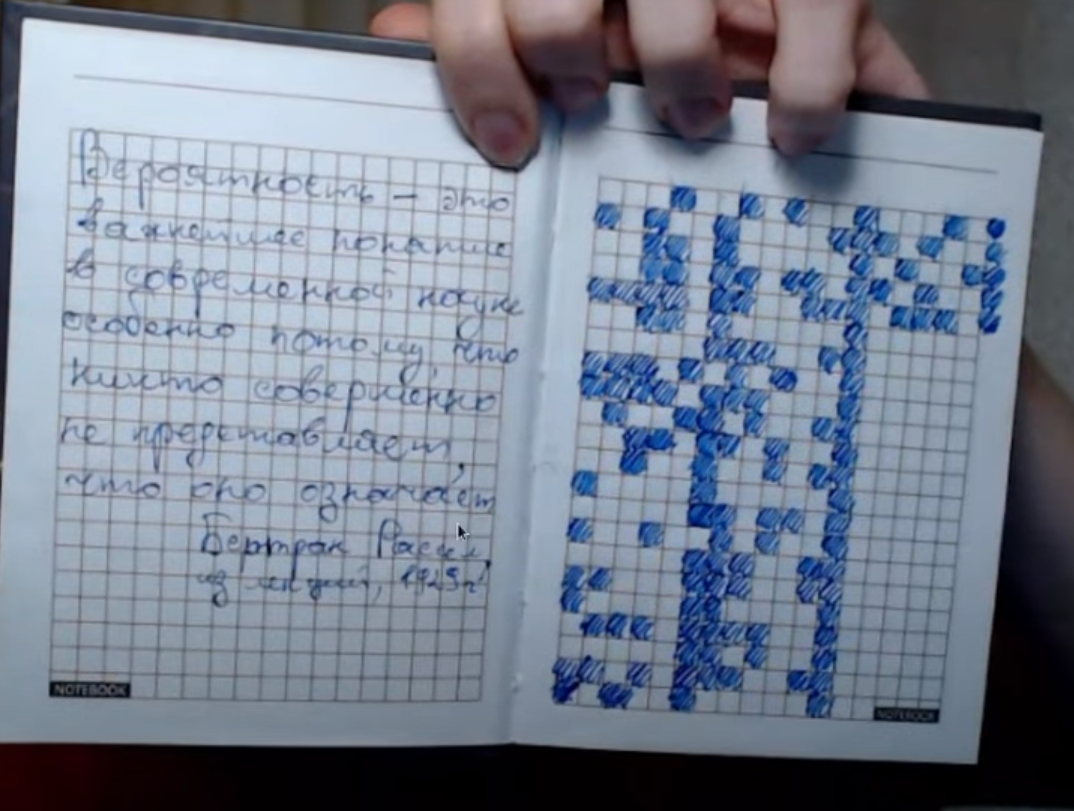 Вероятность — это
важнейшее понятие
в современной науке
особенно потому, что
никто совершенно
не представляет,
что оно означает
Бертран Рассел,
из лекций, 1929г.
NOTEBOOK
NOTEBOOK